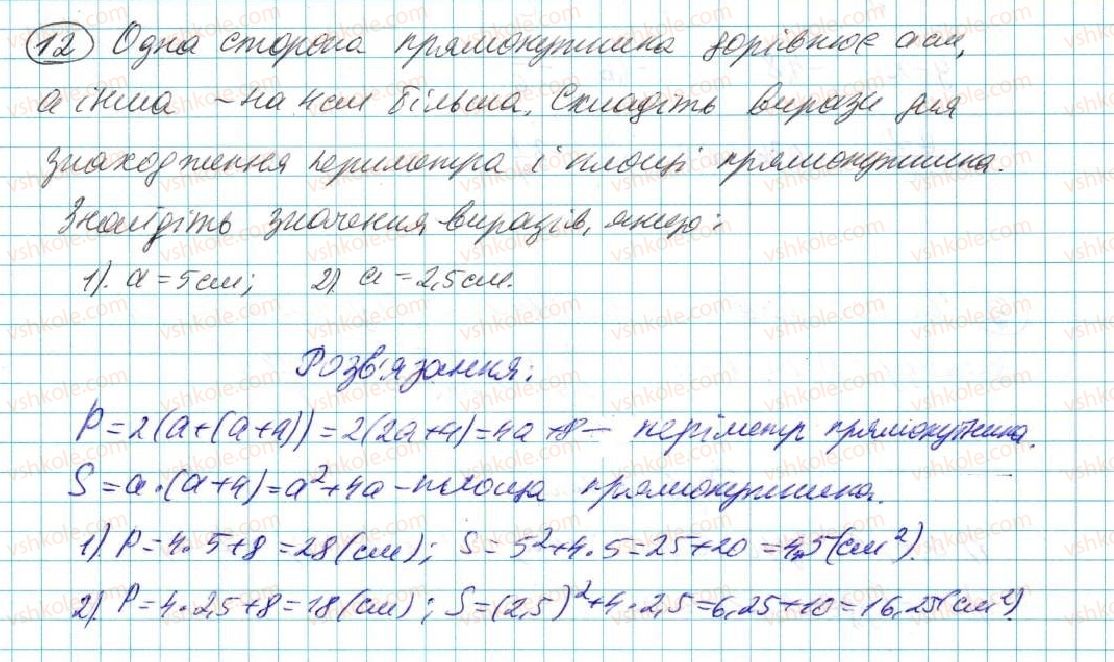 12 Одна сторона прямокутника дорівнює а см,
а інша – на 4 см більша. Складіть вирази для
знаходження периметра і площі прямокутника.
Знайдіть значення виразів, якщо:
1). а = 5 см; 2) а = 2,5 см.
Розв'язання:
P = 2(a+(a+4)) = 2(2a+4) = 4a+8 – периметр прямокутника.
S = a·(a+4) = a²+4a – площа прямокутника.
1) P = 4·5+8 = 28 (см); S = 5²+4·5 = 25+20 = 45 (см²).
2) P = 4·2,5+8 = 18 (см); S = (2,5)²+4·2,5 = 6,25+10 = 16,25 (см²)